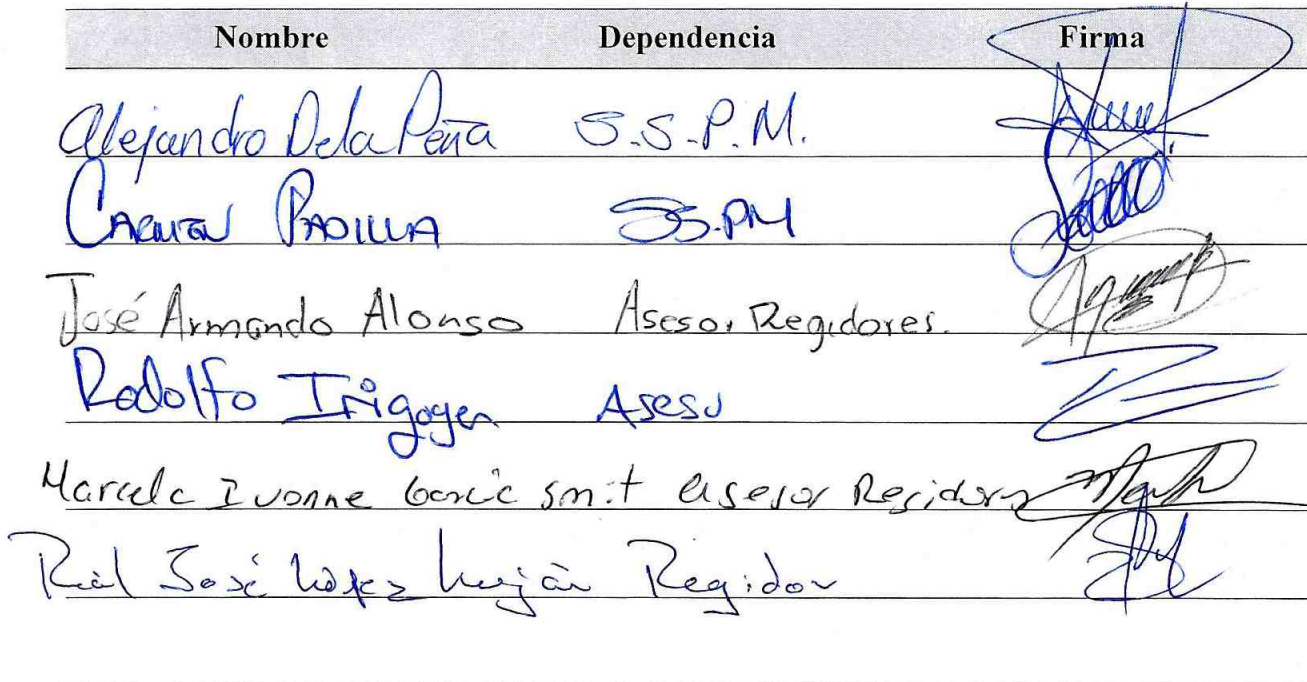 Nombre Dependencia Firma
Alejandro De la Peña S.S.P.M.
CARMEN PADILLA SS.PM
José Armando Alonso Asesor Regidores.
Rodolfo Irigoyen Asesor
Marcela Ivonne García Smit asesor Regidores
José López Luján Regidor